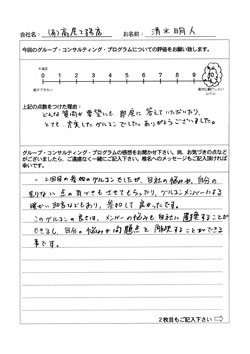 会社名： (有)高尾工務店　お名前： 清水 明人
今回のグループ・コンサルティング・プログラムについての評価をお願い致します。
不満足
0 1 2 3 4 5 6 7 8 9 10
上記の点数をつけた理由：
どんな質問や要望にも即座に答えていただいたり、
とても充実したグルコンでした。ありがとうございました。
グループ・コンサルティング・プログラムの感想をお聞かせ下さい。尚、お気づきの点など
がございましたら、ご遠慮なく一緒にご記入下さい。種名へのメッセージもご記入頂ければ
幸いです。
2回目の参加のグルコンでしたが、自社の悩みや、自分の
足りない点の気づきもさせてもらったり、グルコンメンバーによる
暖かい助言などもあり、参加して良かったです。
このグルコンの良さは、メンバーの悩みも自社に置換することが
できるし、自分の悩みや問題点を解決することができる
事です。
2枚目もご記入下さい